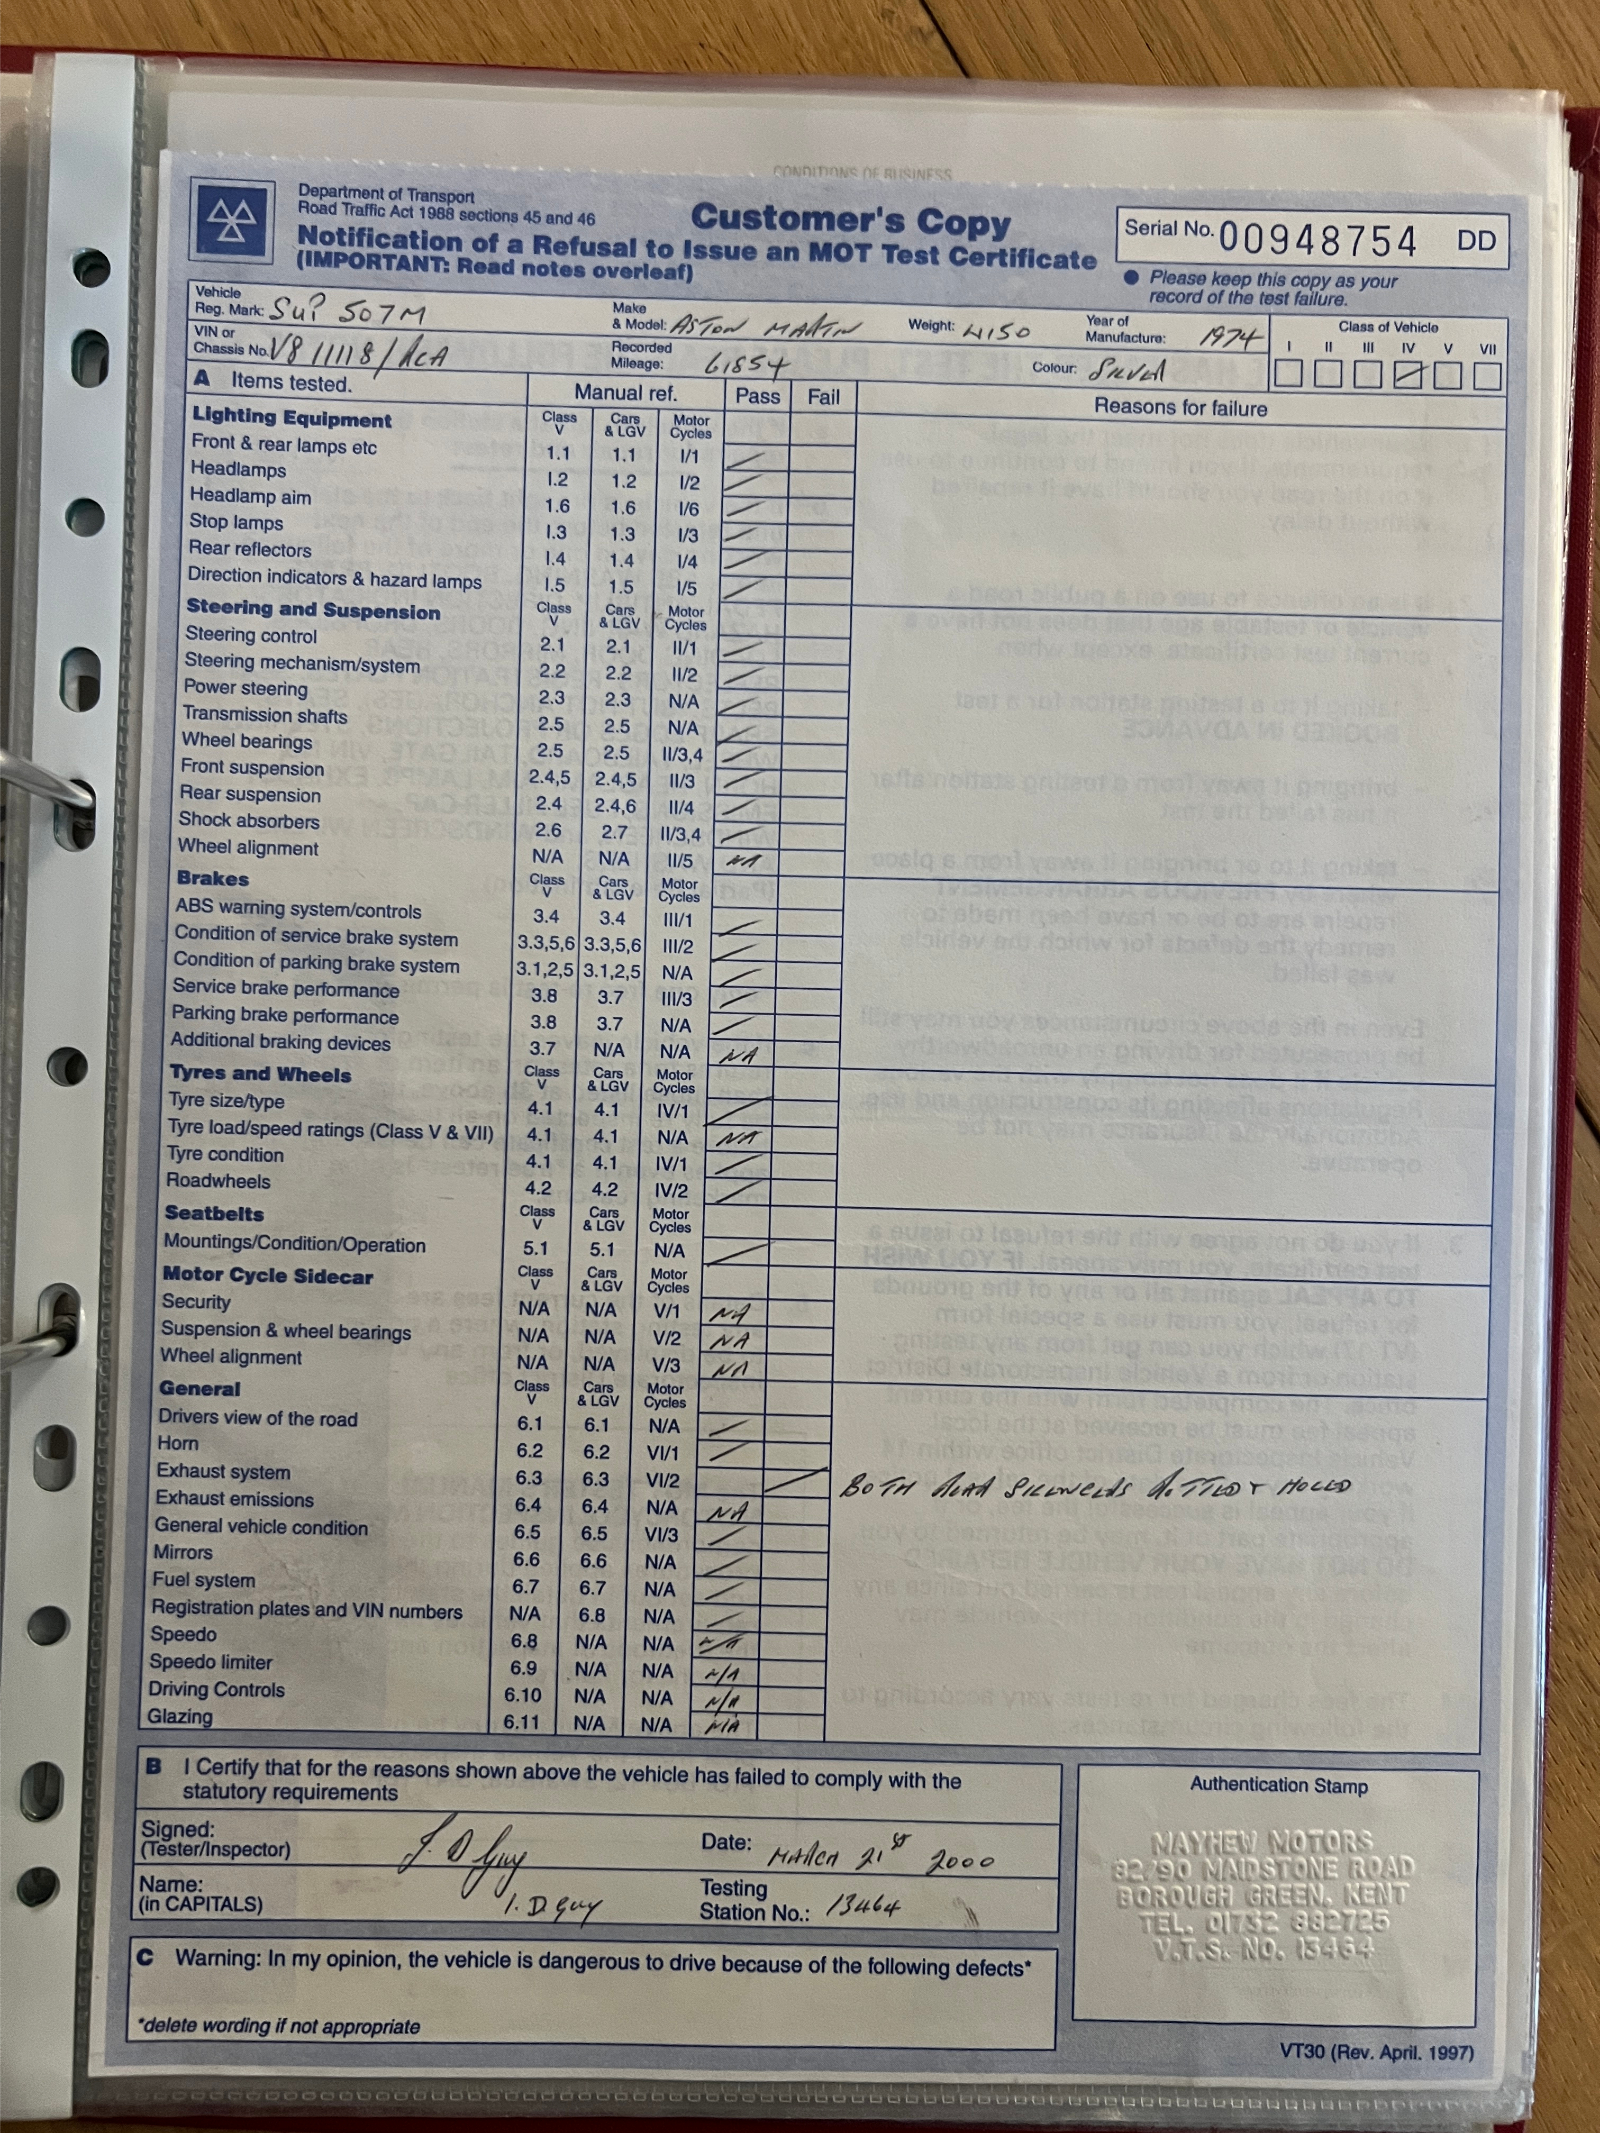 CONDITIONS OF BUSINESS
Department of Transport
Road Traffic Act 1988 sections 45 and 46
Customer's Copy
Notification of a Refusal to Issue an MOT Test Certificate
(IMPORTANT: Read notes overleaf)
Serial No. 00948754 DD
● Please keep this copy as your
record of the test failure.
Vehicle
Reg. Mark: SUP 507M
Make
& Model: ASTON MARTIN
Weight: 4150
Year of
Manufacture: 1974
Class of Vehicle
I II III IV V VII
VIN or
Chassis No. V8 11118/RCA
Recorded
Mileage: 61854
Colour: SILVER
A Items tested. Manual ref. Pass Fail Reasons for failure
Lighting Equipment Class V Cars & LGV Motor Cycles
Front & rear lamps etc 1.1 1.1 I/1
Headlamps 1.2 1.2 I/2
Headlamp aim 1.6 1.6 I/6
Stop lamps 1.3 1.3 I/3
Rear reflectors 1.4 1.4 I/4
Direction indicators & hazard lamps 1.5 1.5 I/5
Steering and Suspension Class V Cars & LGV Motor Cycles
Steering control 2.1 2.1 II/1
Steering mechanism/system 2.2 2.2 II/2
Power steering 2.3 2.3 N/A
Transmission shafts 2.5 2.5 N/A
Wheel bearings 2.5 2.5 II/3,4
Front suspension 2.4,5 2.4,5 II/3
Rear suspension 2.4 2.4,6 II/4
Shock absorbers 2.6 2.7 II/3,4
Wheel alignment N/A N/A II/5 NA
Brakes Class V Cars & LGV Motor Cycles
ABS warning system/controls 3.4 3.4 III/1
Condition of service brake system 3.3,5,6 3.3,5,6 III/2
Condition of parking brake system 3.1,2,5 3.1,2,5 N/A
Service brake performance 3.8 3.7 III/3
Parking brake performance 3.8 3.7 N/A
Additional braking devices 3.7 N/A N/A NA
Tyres and Wheels Class V Cars & LGV Motor Cycles
Tyre size/type 4.1 4.1 IV/1
Tyre load/speed ratings (Class V & VII) 4.1 4.1 N/A NA
Tyre condition 4.1 4.1 IV/1
Roadwheels 4.2 4.2 IV/2
Seatbelts Class V Cars & LGV Motor Cycles
Mountings/Condition/Operation 5.1 5.1 N/A
Motor Cycle Sidecar Class V Cars & LGV Motor Cycles
Security N/A N/A V/1 NA
Suspension & wheel bearings N/A N/A V/2 NA
Wheel alignment N/A N/A V/3 NA
General Class V Cars & LGV Motor Cycles
Drivers view of the road 6.1 6.1 N/A
Horn 6.2 6.2 VI/1
Exhaust system 6.3 6.3 VI/2 BOTH REAR SILENCERS ROTTED & HOLED
Exhaust emissions 6.4 6.4 N/A NA
General vehicle condition 6.5 6.5 VI/3
Mirrors 6.6 6.6 N/A
Fuel system 6.7 6.7 N/A
Registration plates and VIN numbers N/A 6.8 N/A
Speedo 6.8 N/A N/A N/A
Speedo limiter 6.9 N/A N/A N/A
Driving Controls 6.10 N/A N/A N/A
Glazing 6.11 N/A N/A N/A
B I Certify that for the reasons shown above the vehicle has failed to comply with the
statutory requirements
Signed:
(Tester/Inspector) I. D Guy
Date: MARCH 21st 2000
Name:
(in CAPITALS) I. D GUY
Testing
Station No.: 13464
C Warning: In my opinion, the vehicle is dangerous to drive because of the following defects*
*delete wording if not appropriate
Authentication Stamp
MAYHEW MOTORS
82/90 MAIDSTONE ROAD
BOROUGH GREEN. KENT
TEL. 01732 882725
V.T.S. NO. 13464
VT30 (Rev. April. 1997)